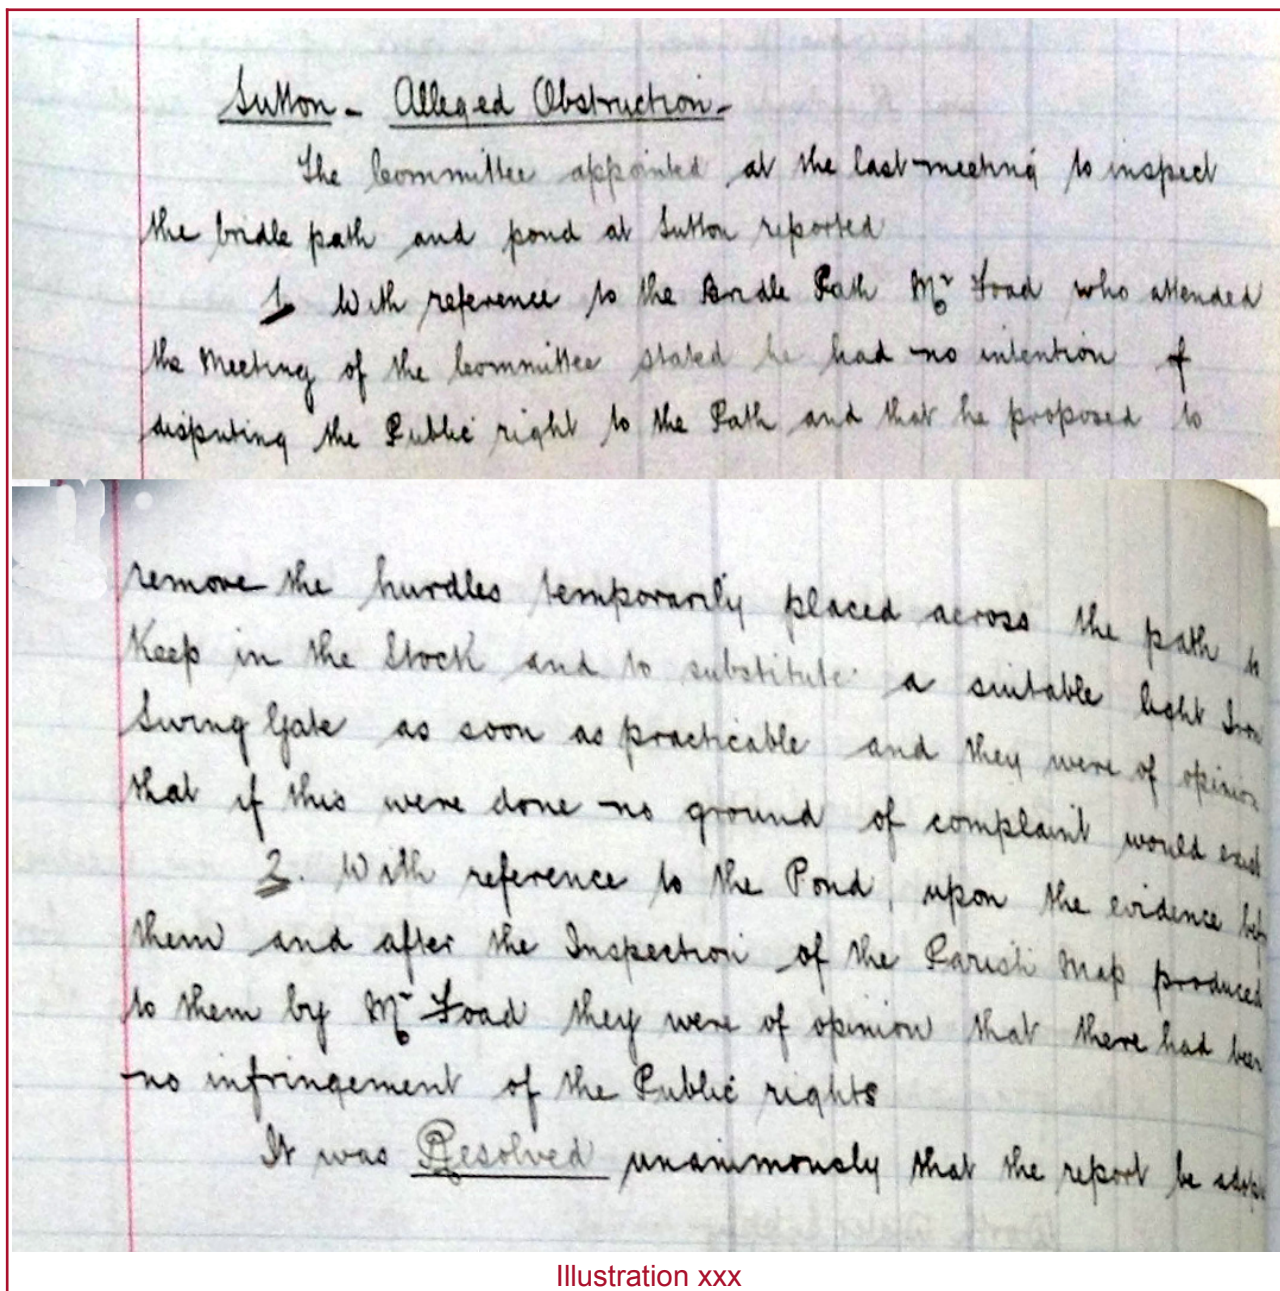 Sutton - Alleged Obstruction -
The Committee appointed at the last meeting to inspect
the bridle path and pond at Sutton reported
1. With reference to the Bridle Path Mr Foad who attended
the Meeting of the Committee stated he had no intention of
disputing the Public right to the Path and that he proposed to
remove the hurdles temporarily placed across the path to
Keep in the Stock and to substitute a suitable light Iron
Swing Gate as soon as practicable and they were of opinion
that if this were done no ground of complaint would exist
2. With reference to the Pond, upon the evidence bef
them and after the Inspection of the Parish Map produced
to them by Mr Foad they were of opinion that there had been
no infringement of the Public rights
It was Resolved unanimously that the report be adop
Illustration xxx